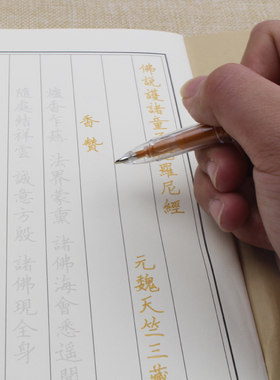 佛說護諸童子羅尼經
元魏天竺三藏
香贊
爐香乍爇 法界蒙熏 諸佛海會悉遙聞
隨處結祥雲 誠意方殷 諸佛現全身